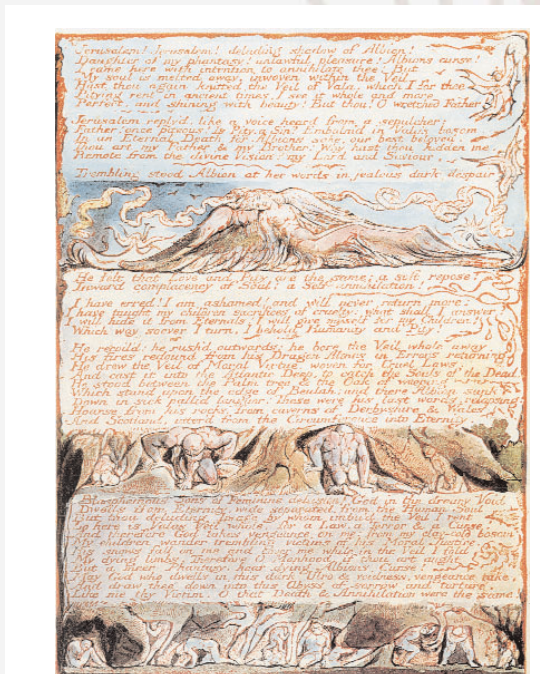 Jerusalem! Jerusalem! deluding shadow of Albion!
Daughter of my phantasy! unlawful pleasure! Albions curse!
I came here with intention to annihilate thee! But
My soul is melted away, inwoven within the Veil
Hast thou again knitted the Veil of Vala, which I for thee
Pitying rent in ancient times. I see it whole and more
Perfect, and shining with beauty! But thou! O wretched Father!
Jerusalem reply'd, like a voice heard from a sepulcher:
Father! once piteous! Is Pity, a Sin? Embalm'd in Vala's bosom
In an Eternal Death for Albions sake, our best beloved.
Thou art my Father & my Brother: Why hast thou hidden me,
Remote from the divine Vision: my Lord and Saviour.
Trembling stood Albion at her words in jealous dark despair:
He felt that Love and Pity are the same; a soft repose!
Inward complacency of Soul: a Self-annihilation!
I have erred! I am ashamed! and will never return more:
I have taught my children sacrifices of cruelty: what shall I answer?
I will hide it from Eternals! I will give myself for my Children!
Which way soever I turn, I behold Humanity and Pity!
He recoil'd: he rush'd outwards; he bore the Veil whole away
His fires redound from his Dragon Altars in Errors returning
He drew the Veil of Moral Virtue, woven for Cruel Laws,
And cast it into the Atlantic Deep, to catch the Souls of the Dead.
He stood between the Palm tree & the Oak of weeping
Which stand upon the edge of Beulah; and there Albion sunk
Down in sick pallid languor! These were his last words, relapsing!
Hoarse from his rocks, from caverns of Derbyshire & Wales
And Scotland, utter'd from the Circumference into Eternity.
Blasphemous Sons of Feminine delusion! God in the dreary Void
Dwells from Eternity, wide separated from the Human Soul
But thou deluding Image by whom imbu'd the Veil I rent
Lo here is Valas Veil whole, for a Law, a Terror & a Curse!
And therefore God takes vengeance on me: from my clay-cold bosom
My children wander trembling victims of his Moral Justice.
His snows fall on me and cover me, while in the Veil I fold
My dying limbs. Therefore O Manhood, if thou art aught
But a meer Phantasy, hear dying Albions Curse!
May God who dwells in this dark Ulro & voidness, vengeance take,
And draw thee down into this Abyss of sorrow and torture,
Like me thy Victim. O that Death & Annihilation were the same!